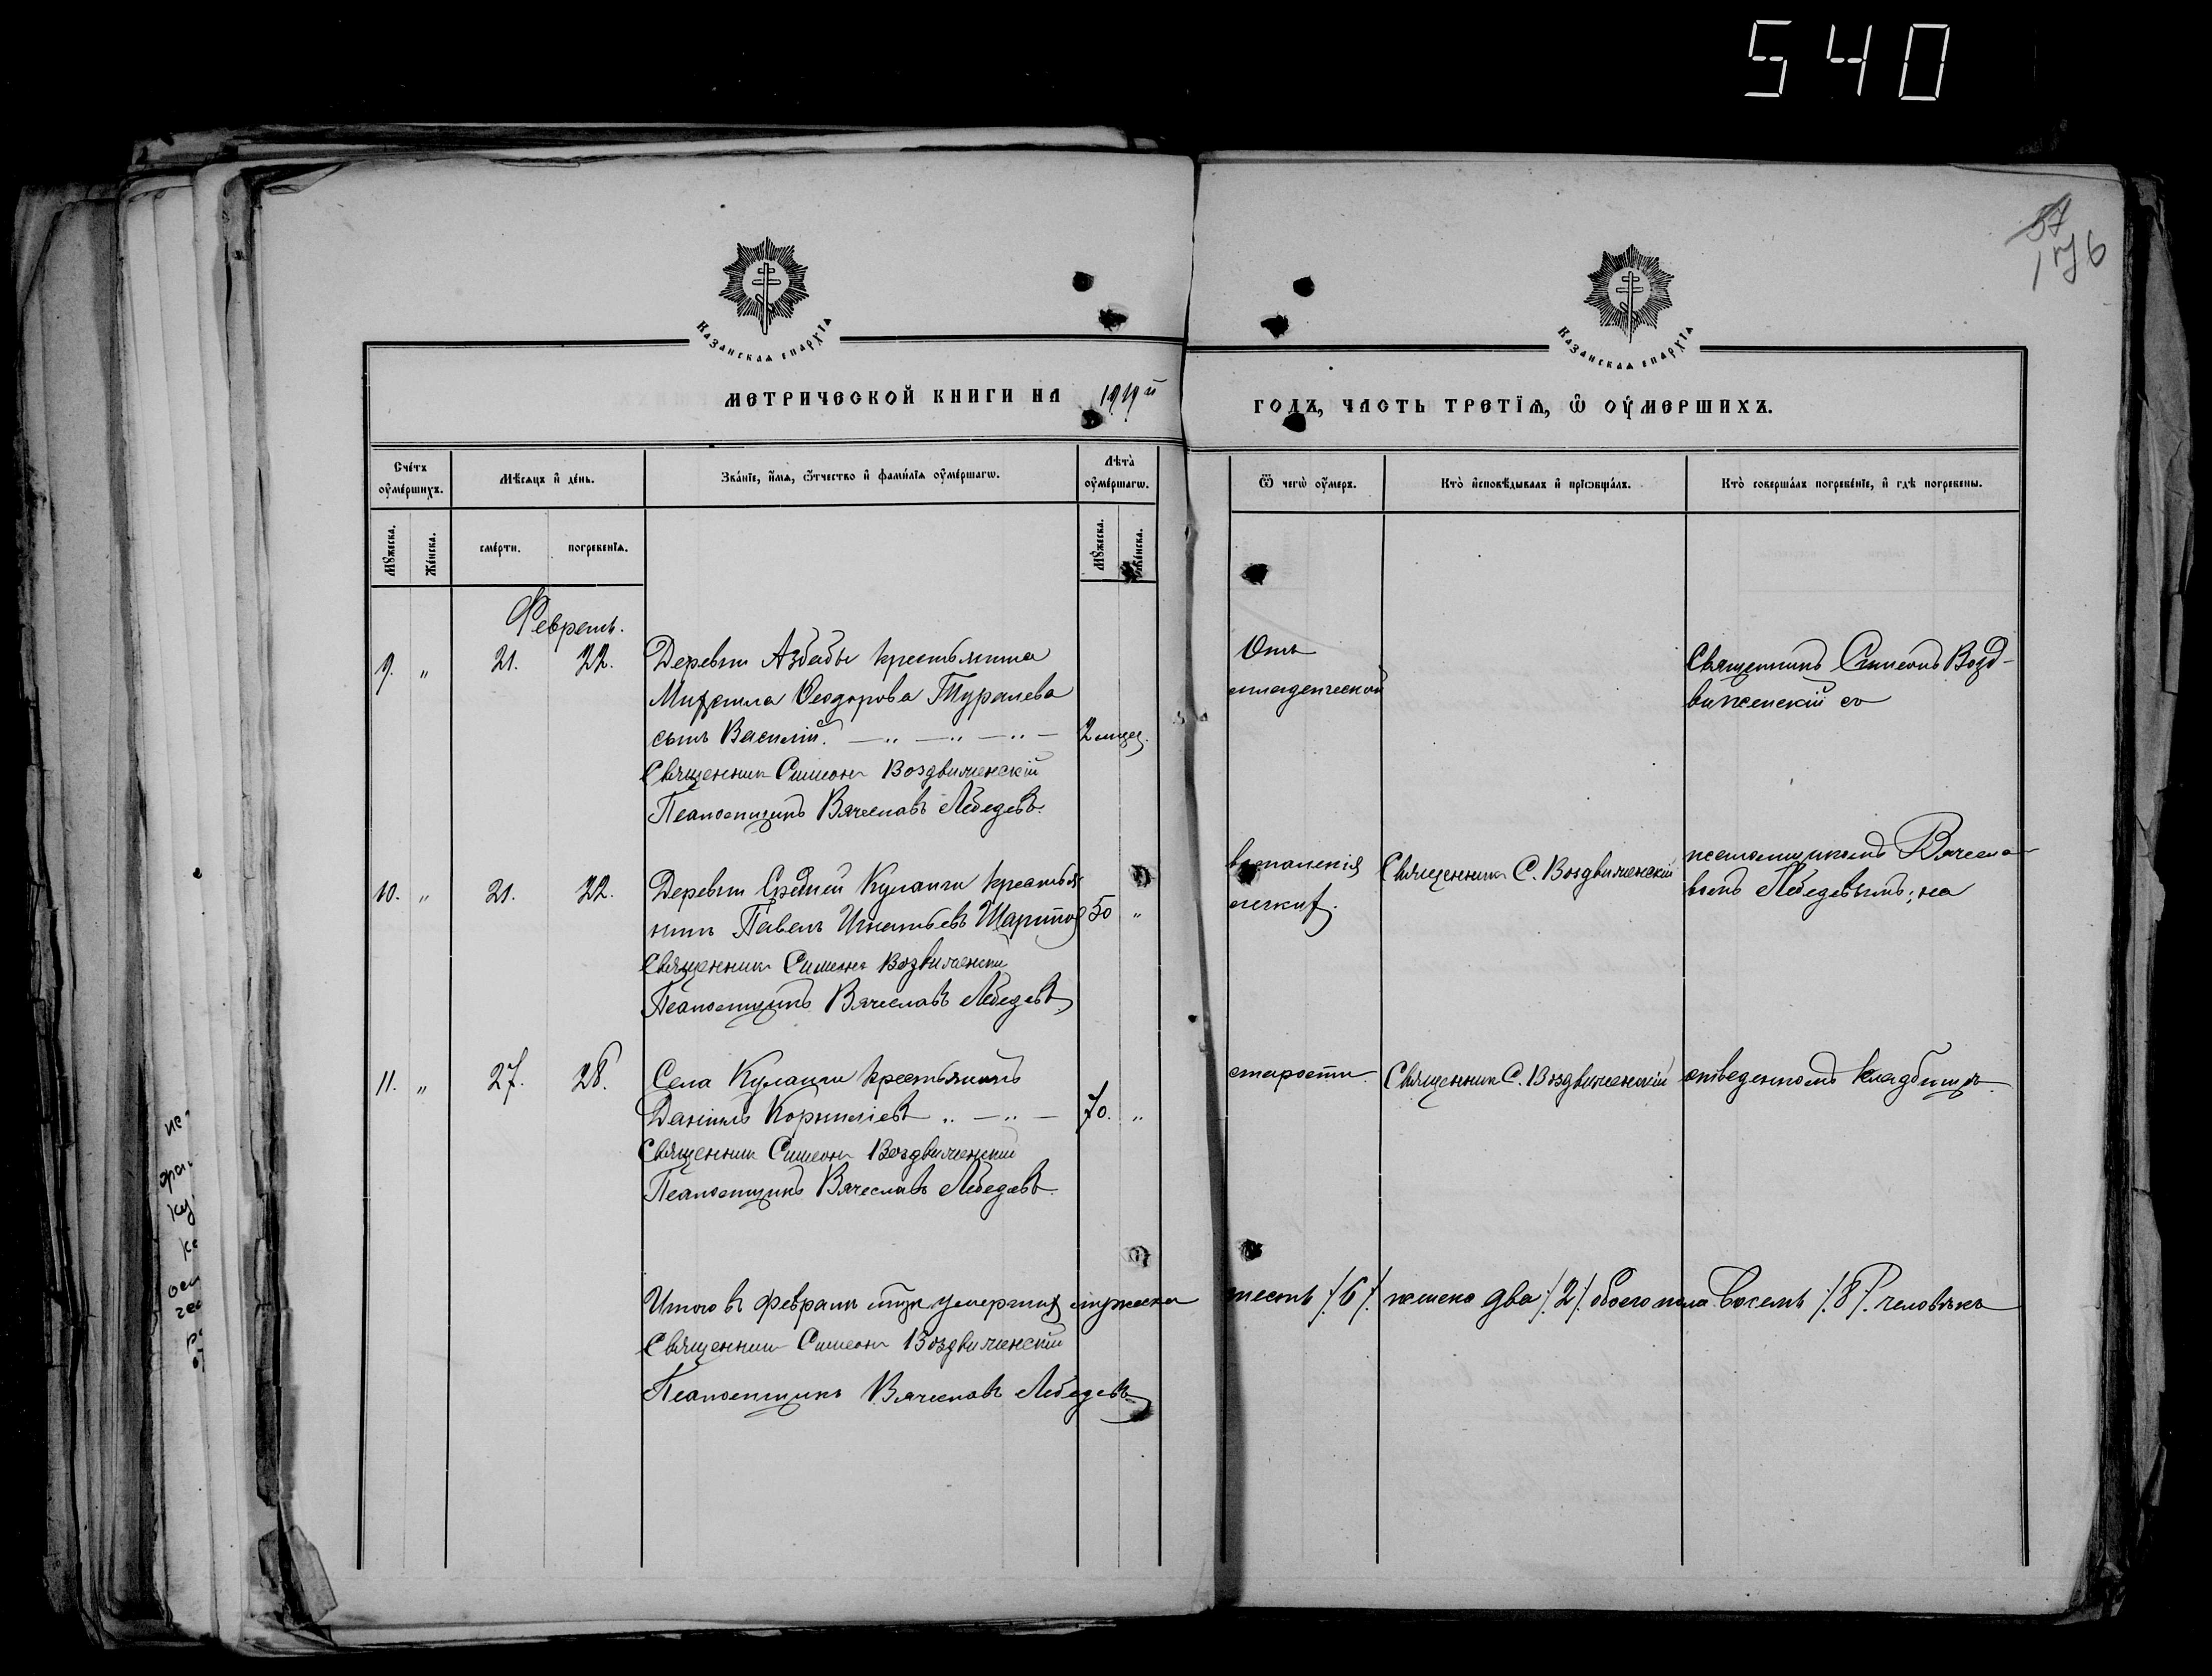 540
57
176
Казанская епархїѧ
Казанская епархїѧ
МЕТРИЧЕСКОЙ КНИГИ НА 1919й
ГОДЪ, ЧАСТЬ ТРЕТІѦ, Ѡ ОУМЕРШИХЪ.
Счетъ оумершихъ.
Мѣсяцъ и день.
Званїе, имѧ, ѿчество и фамилїѧ оумершагѡ.
Лѣта оумершагѡ.
Ѿ чегѡ оумеръ.
Кто исповѣдывалъ и прїѡбщалъ.
Кто совершалъ погребенїе, и гдѣ погребены.
Мꙋжеска.
Женска.
смерти.
погребенїѧ.
Мꙋжеска.
Женска.
Февраль.
9. „ 21. 22. Деревни Азбабы крестьянина
Михаила Ѳеодорова Туралева
сынъ Василій. 2 мѣс.
Священникъ Симеонъ Воздвиженскій
Псаломщикъ Вячеславъ Лебедевъ.
Отъ
младенческой
Священникъ Симеонъ Возд-
виженскій со
10. „ 21. 22. Деревни Средней Куланги крестья
нинъ Павелъ Игнатьевъ 50 „
Священникъ Симеонъ Возвиженски
Псаломщикъ Вячеславъ Лебедевъ
воспаленія
легких.
Священникъ С. Воздвиженскій
псаломщикомъ Вячесла-
вомъ Лебедевымъ; на
11. „ 27. 28. Села Куланги крестьянинъ
Даніилъ Корниліевъ 70. „
Священник Симеонъ Воздвиженский
Псаломщикъ Вячеславъ Лебедевъ.
старости.
Священник С. Воздвиженскій
отведенномъ кладбищѣ.
Итого въ Февралѣ м-цѣ умершихъ мужеска шесть /6/. женска два /2/. обоего пола восемь /8/. человѣкъ
Священникъ Симеонъ Воздвиженскій
Псаломщикъ Вячеславъ Лебедевъ